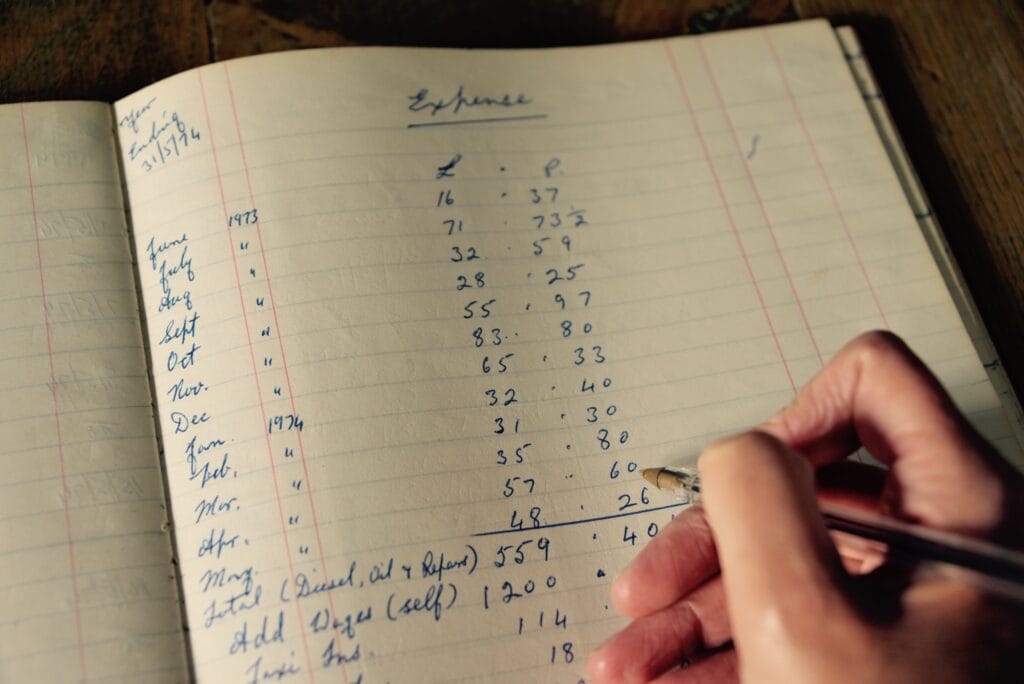 Year
Ending
31/5/74
Expence
£ . P.
June 1973 16 . 37
July " 71 . 73½
Aug " 32 . 59
Sept " 28 . 25
Oct " 55 . 97
Nov. " 83 . 80
Dec " 65 . 33
Jan. 1974 32 . 40
Feb. " 31 . 30
Mar. " 35 . 80
Apr. " 57 . 60
May. " 48 . 26
Total (Diesel, Oil & Repairs) 559 . 40
Add Wages (self) 1200 .
Taxi Ins. 114 .
18